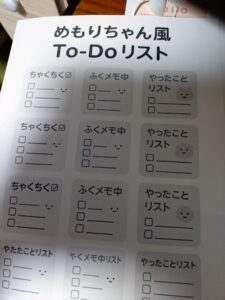 めもりちゃん風
To-Doリスト
ちゃくちく
ふくメモ中
やったこと
リスト
ちゃくちく
ふくメモ中
やったこと
リスト
ちゃくちく
ふくメモ中
やったこと
リスト
やたたことリスト
やくメモ中リスト
やったことリスト